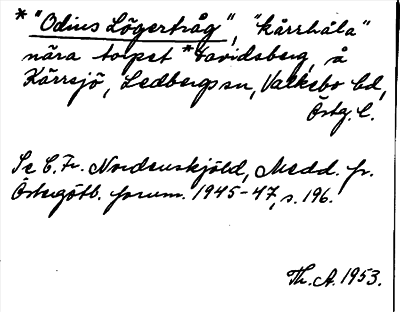 * "Odins Lögertråg", "kärrhåla"
nära torpet * Davidsberg, å
Kärrsjö, Ledbergs sn, Valkebo hd,
Östg. l.
Se C. Fr. Nordenskjöld, Medd. fr.
Östergötl. fornm. 1945-47, s. 196.
Th. A. 1953.